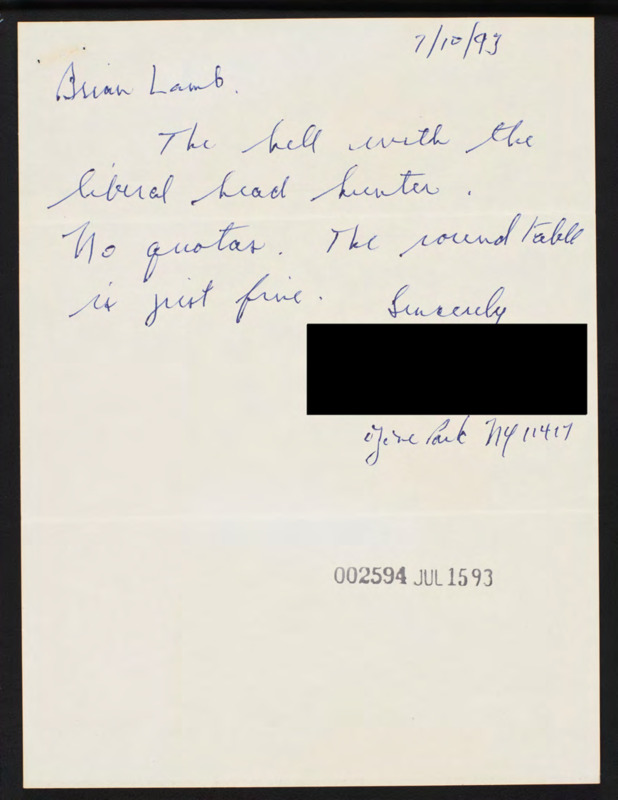 7/10/93
Brian Lamb.
The hell with the
liberal head hunter.
No quotas. The round table
is just fine.
Sincerely
Ozone Park NY 11417
002594 JUL 15 93